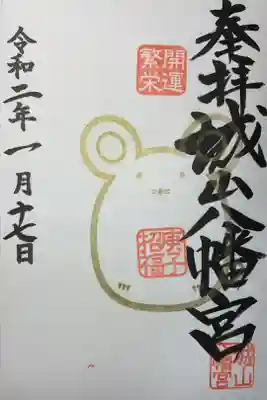 奉拝 城山八幡宮
開運
繁栄
庚子
招福
令和二年一月十七日